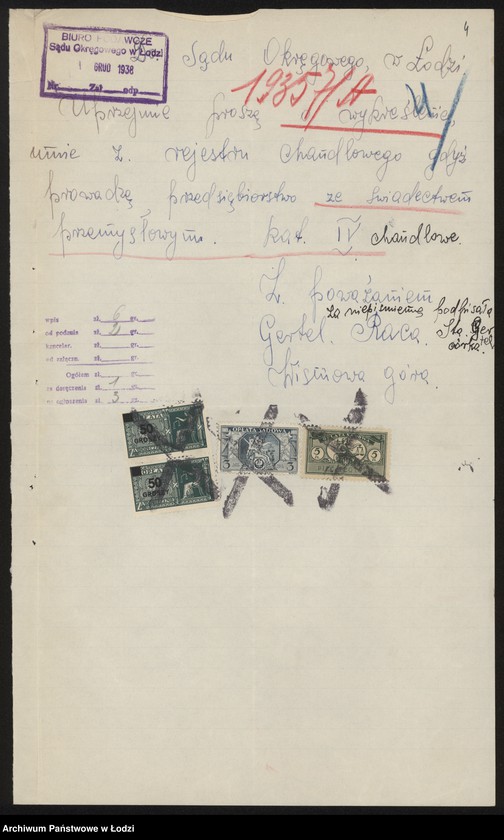 4
BIURO PODAWCZE
Sądu Okręgowego w Łodzi
1 GRUD 1938
Nr. Zał. odp.
Do Sądu Okręgowego, w Łodzi
1935/A
Uprzejmie proszę wykreślenie,
mnie z. rejestru chandlowego gdyż
prowadzę przedsiębiorstwo ze świadectwem
przemysłowym. kat. IV chandlowe.
Z poważaniem
za niepiśmienną podpisała
Gertel. Raca. Sta. Gertel
córka.
Wiśniowa góra.
wpis zł. 6 gr.
od podania zł. gr.
kancelar. zł. gr.
od załączn. zł. gr.
Ogółem zł. gr.
za doręczenie zł. 1 gr.
za ogłoszenie zł. 3 gr.
50
GROSZY
50
GROSZY
OPŁATA SĄDOWA
3 3
5 5
Archiwum Państwowe w Łodzi